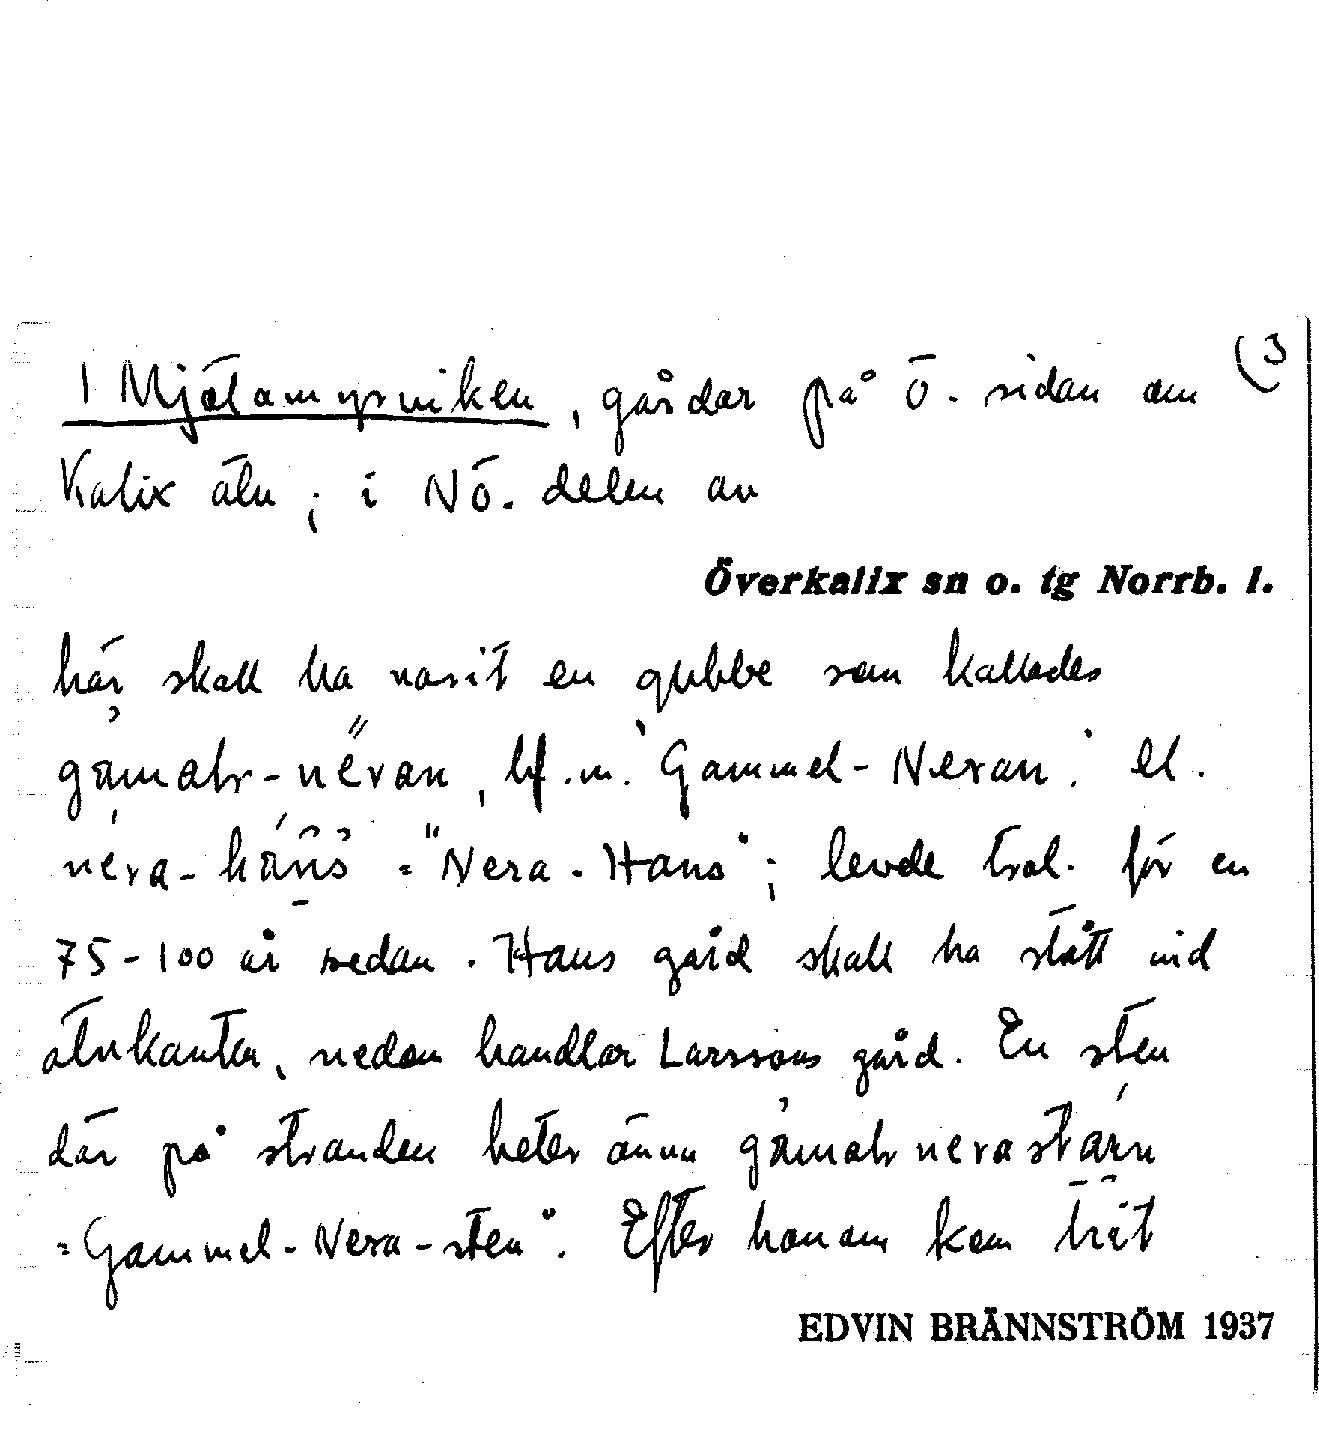 (3
1 Mjölamyrviken, gårdar på ö. sidan om
Kalix älv; i NÖ. delen av
Överkalix sn o. tg Norrb. l.
här skall ha varit en gubbe som kallades
gämalr-nẽran, bf.m. "Gammel-Neran" el.
nera-häns = "Nera-Hans"; levde trol. för en
75-100 år sedan. Hans gård skall ha stått vid
älvkanten, nedom handlar Larssons gård. En sten
där på stranden heter ännu gämalr nerastäin
= "Gammel-Nera-sten". Efter honom kom hit
EDVIN BRÄNNSTRÖM 1937